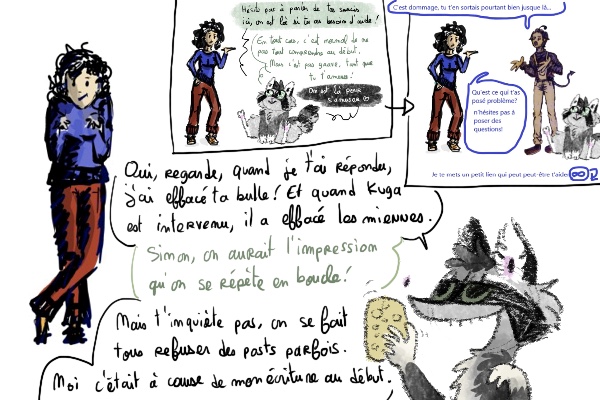 Hésite pas à parler de tes soucis
ici, on est là si tu as besoin d'aide!
En tout cas, c'est normal de ne
pas tout comprendre au début.
Mais c'est pas grave, tant que
tu t'amuses!
On est là pour
s'amuser
C'est dommage, tu t'en sortais pourtant bien jusque là...
Qu'est ce qui t'as
posé problème?
n'hésites pas à
poser des
questions!
Je te mets un petit lien qui peut peut-être t'aider
Oui, regarde, quand je t'ai répondu,
j'ai effacé ta bulle! Et quand Kuga
est intervenu, il a effacé les miennes.
Simon, on aurait l'impression
qu'on se répète en boucle!
Mais t'inquiète pas, on se fait
tous refuser des posts parfois.
Moi c'était à cause de mon écriture au début.